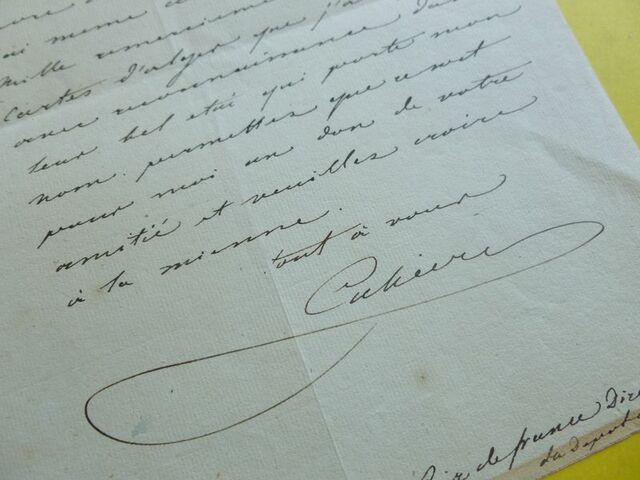 ai même
mille remerciements
Cartes d'alger que j'ai
avec reconnaissance dans
leur bel etui qui porte mon
nom. permettez que ce soit
pour moi un don de votre
amitié et veuillez croire
à la mienne.
tout à vous
Cubières
de france Dire
du depot